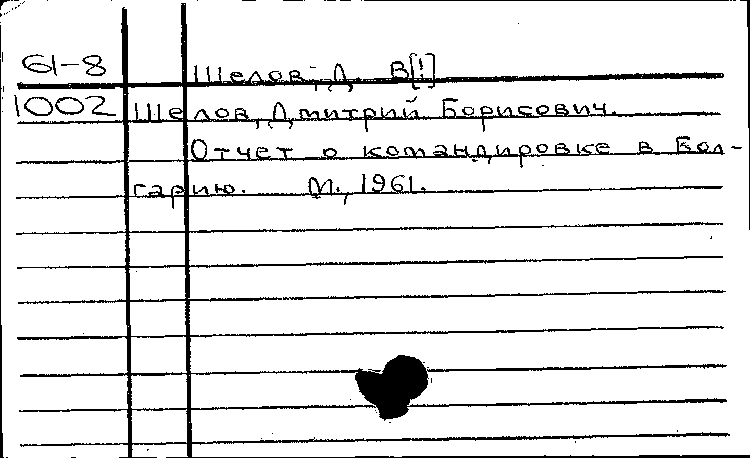 61-8 Шелов, Д. В[!]
1002 Шелов, Дмитрий Борисович.
Отчет о командировке в Бол-
гарию. М., 1961.